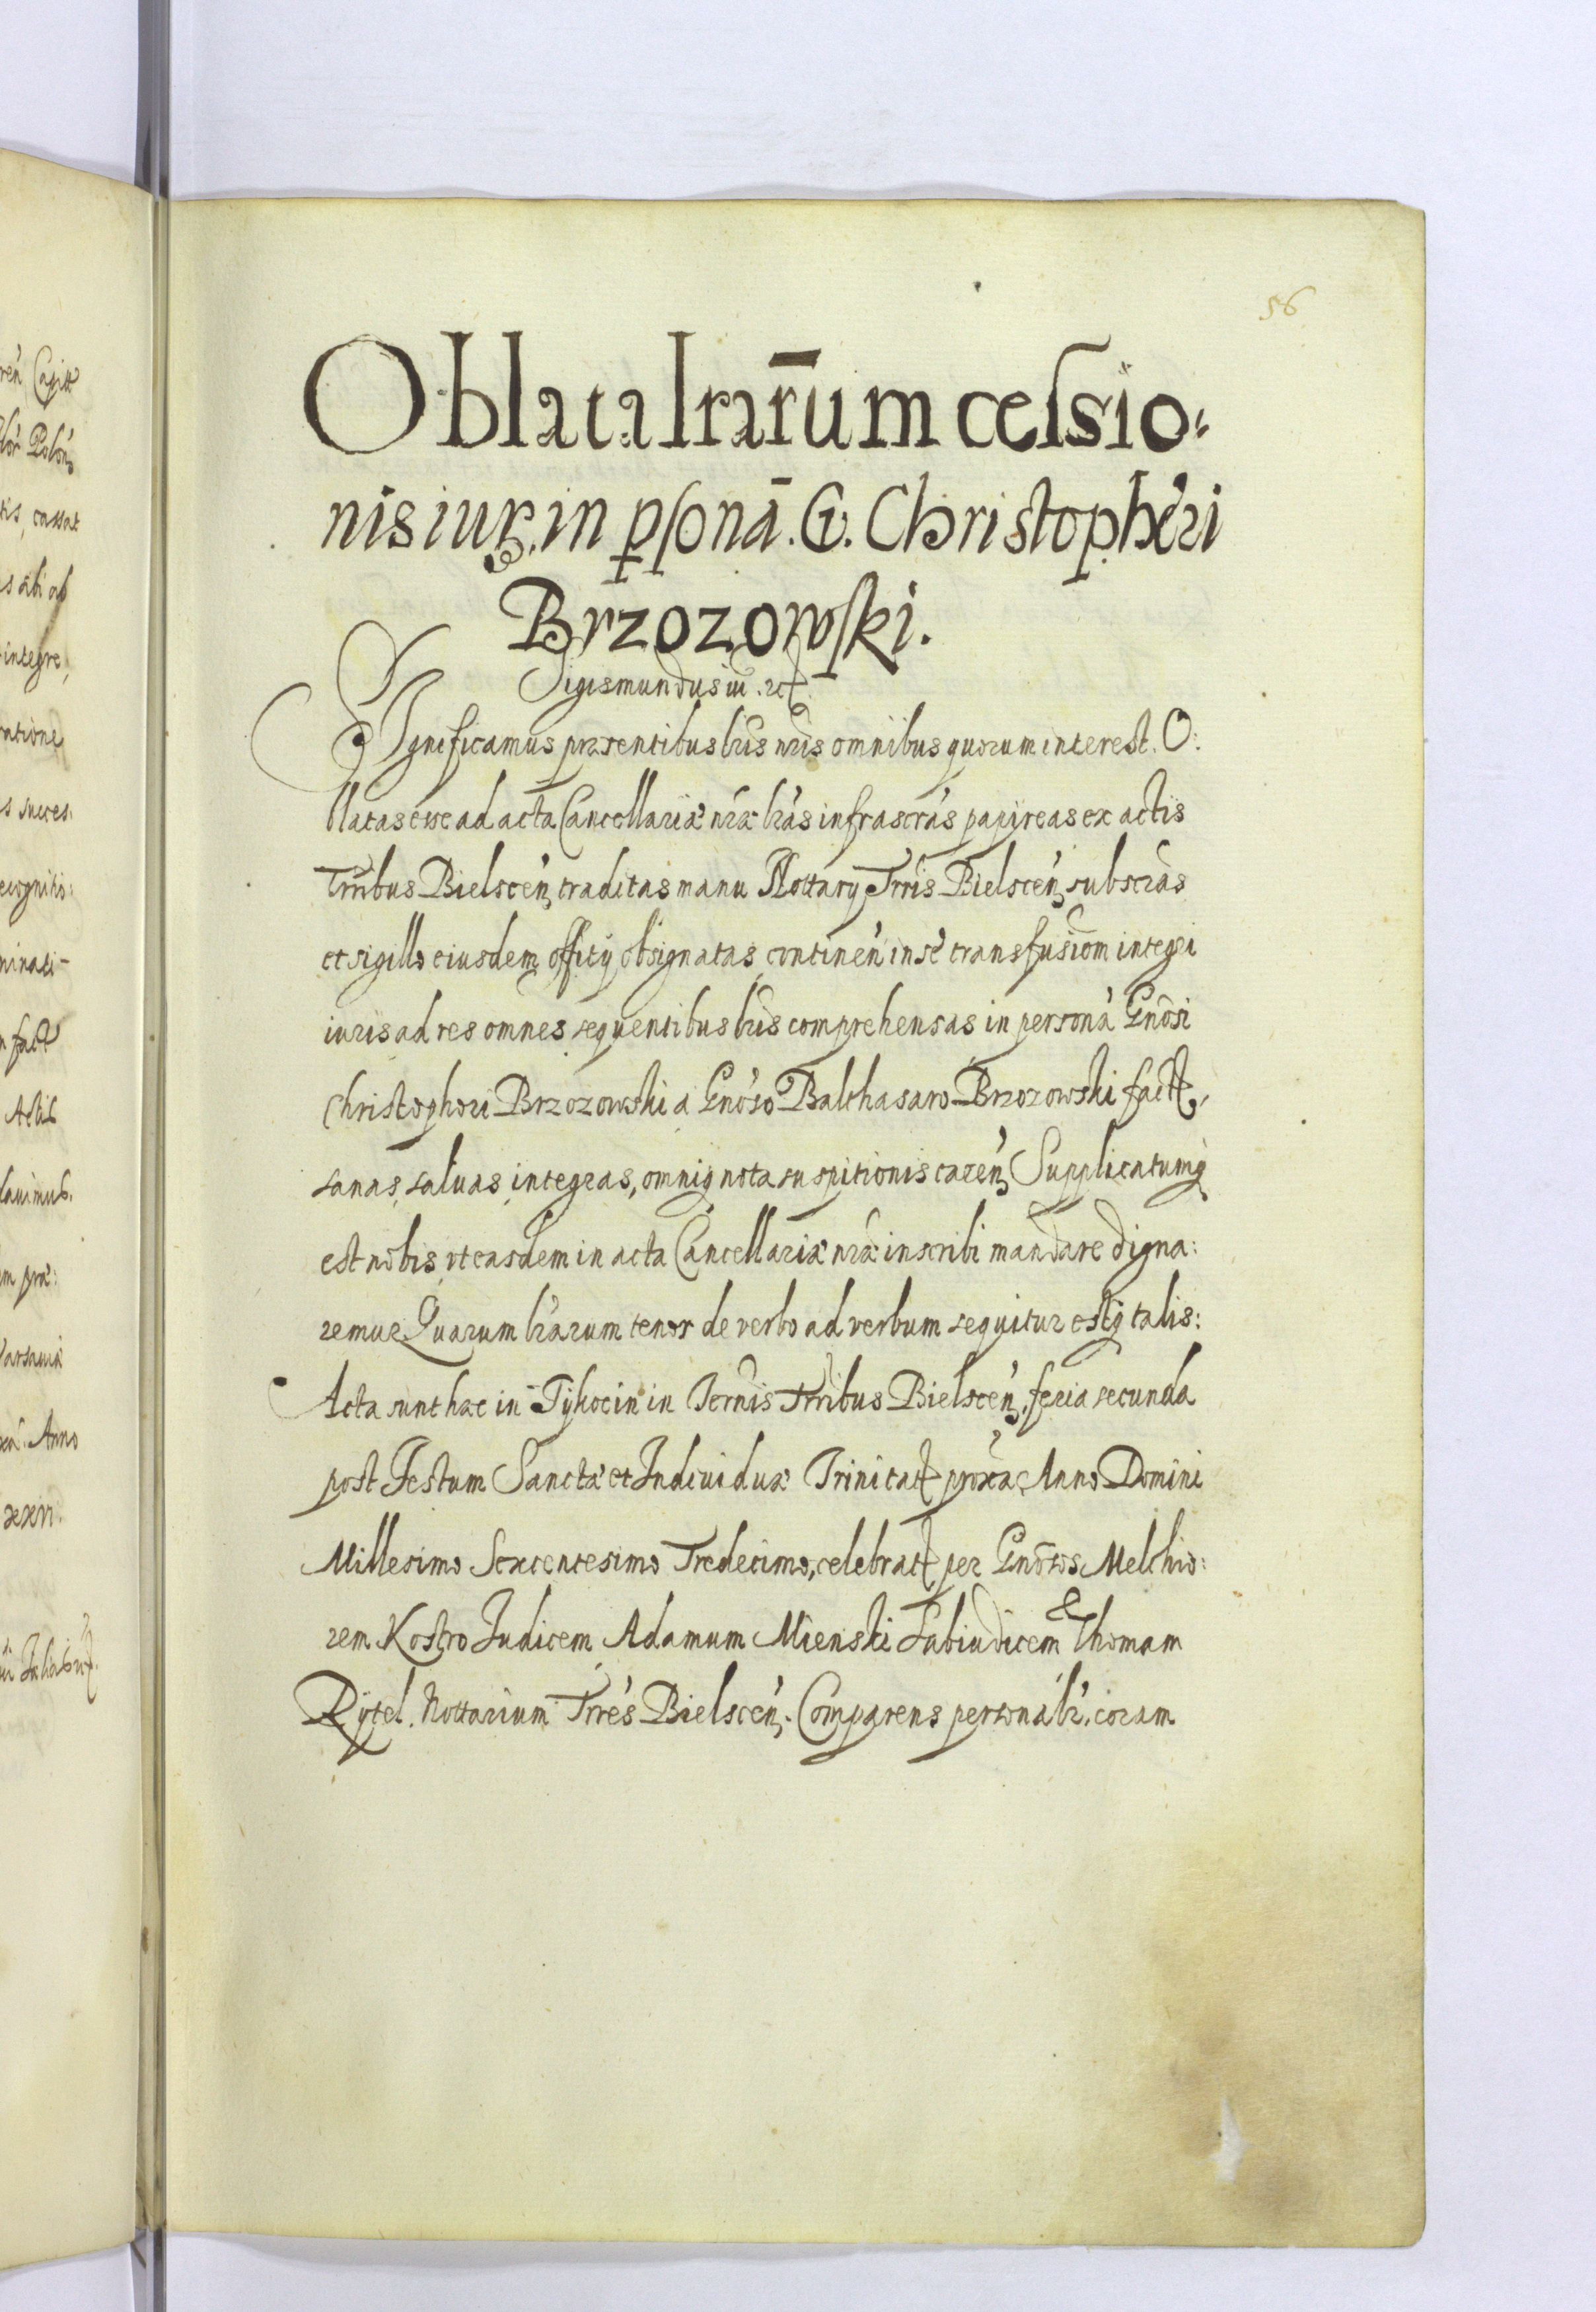 56
Oblata lrarūm cessio-
nis iur. in psonā. G. Christopheri
Brzozowski.
Sigismundus iii. etc.
SIgnificamus præsentibus lris nris omnibus quorum interest. O:
blatas esse ad acta Cancellariæ nræ lras infrascras papyreas ex actis
Trribus Bielscen, traditas manu Nottarij Trris Bielscen, subscras
et sigillo eiusdem officij obsignatas, continen in se transfusiom integri
iuris ad res omnes sequentibus lris comprehensas in persona Gnosi
Christophori Brzozowski a Gnoso Balthasaro Brzozowski fact,
sanas, saluas, integras, omniq nota suspitionis caren, Supplicatumq
est nobis, vt easdem in acta Cancellariæ nræ inscribi mandare digna:
remur. Quarum lrarum tenor de verbo ad verbum sequitur estq talis:
Acta sunt hæc in Tykocin in Termis Trribus Bielscen, feria secunda
post Festum Sanctæ et Indiuiduæ Trinitat proxa, Anno Domini
Millesimo Sexcentesimo Tredecimo, celebrat, per Gnosos Melchio:
rem Kostro Iudicem, Adamum Mienski Subiudicem & Thomam
Rytel. Nottarium Trres Bielscen. Comparens personalr. coram
ren Capitt
Polon
tis, cassat
integre,
ratione
s succes.
ecognitio:
minati-
fact
Actis
lauimus.
m præ:
Varsauiæ
Anno
xxvi.